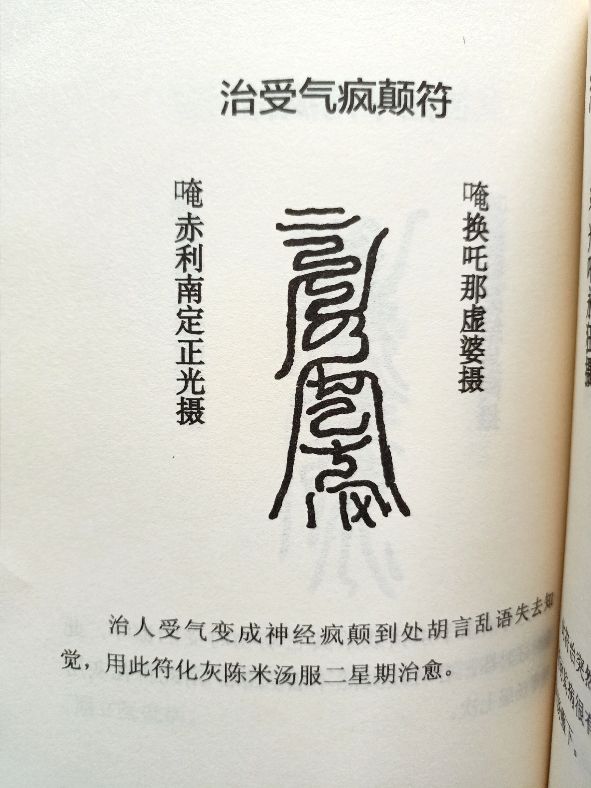 治受气疯颠符
唵换吒那虚婆摄
唵赤利南定正光摄
治人受气变成神经疯颠到处胡言乱语失去知
觉，用此符化灰陈米汤服二星期治愈。